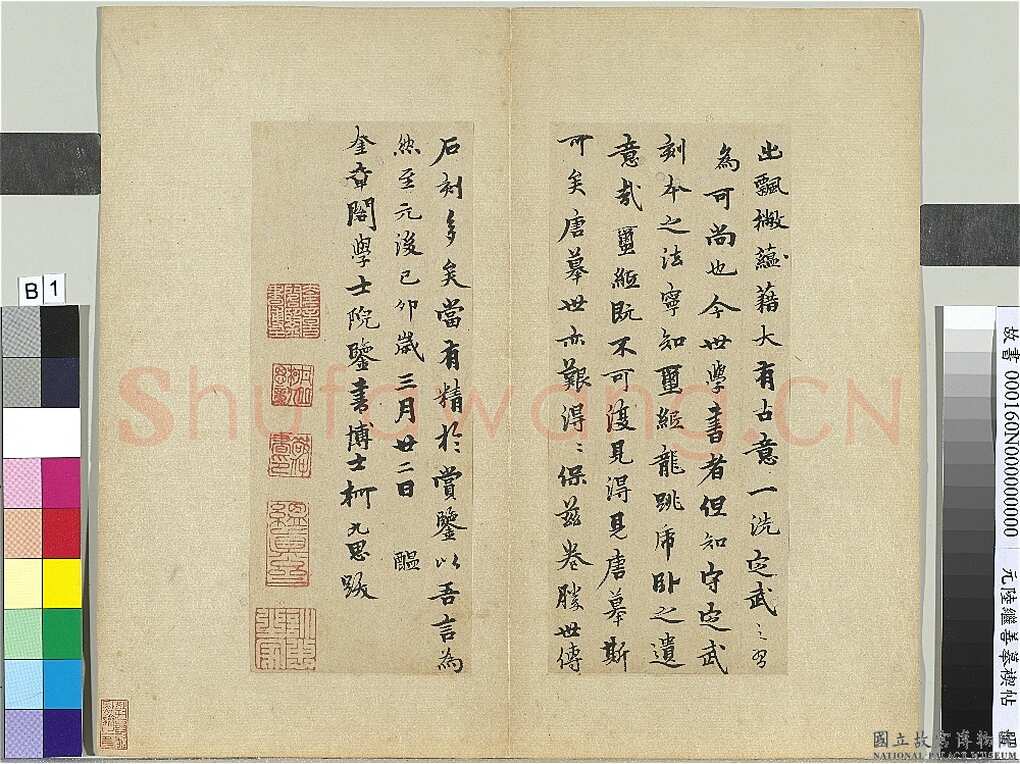 出飄撇蘊藉大有古意一洗定武之習
為可尚也今世學書者但知守定武
刻本之法寧知璽紙龍跳虎卧之遺
意哉璽紙既不可復見得見唐摹斯
可矣唐摹世亦艱得〻保茲卷勝世傳
石刻多矣當有精於賞鑒以吾言為
然至元後己卯歲三月廿二日 醖
奎章閣學士院鑒書博士柯九思跋
Shufawang.CN
B 1
故書 000160N000000000 元陸繼善摹禊帖
國立故宮博物院
NATIONAL PALACE MUSEUM